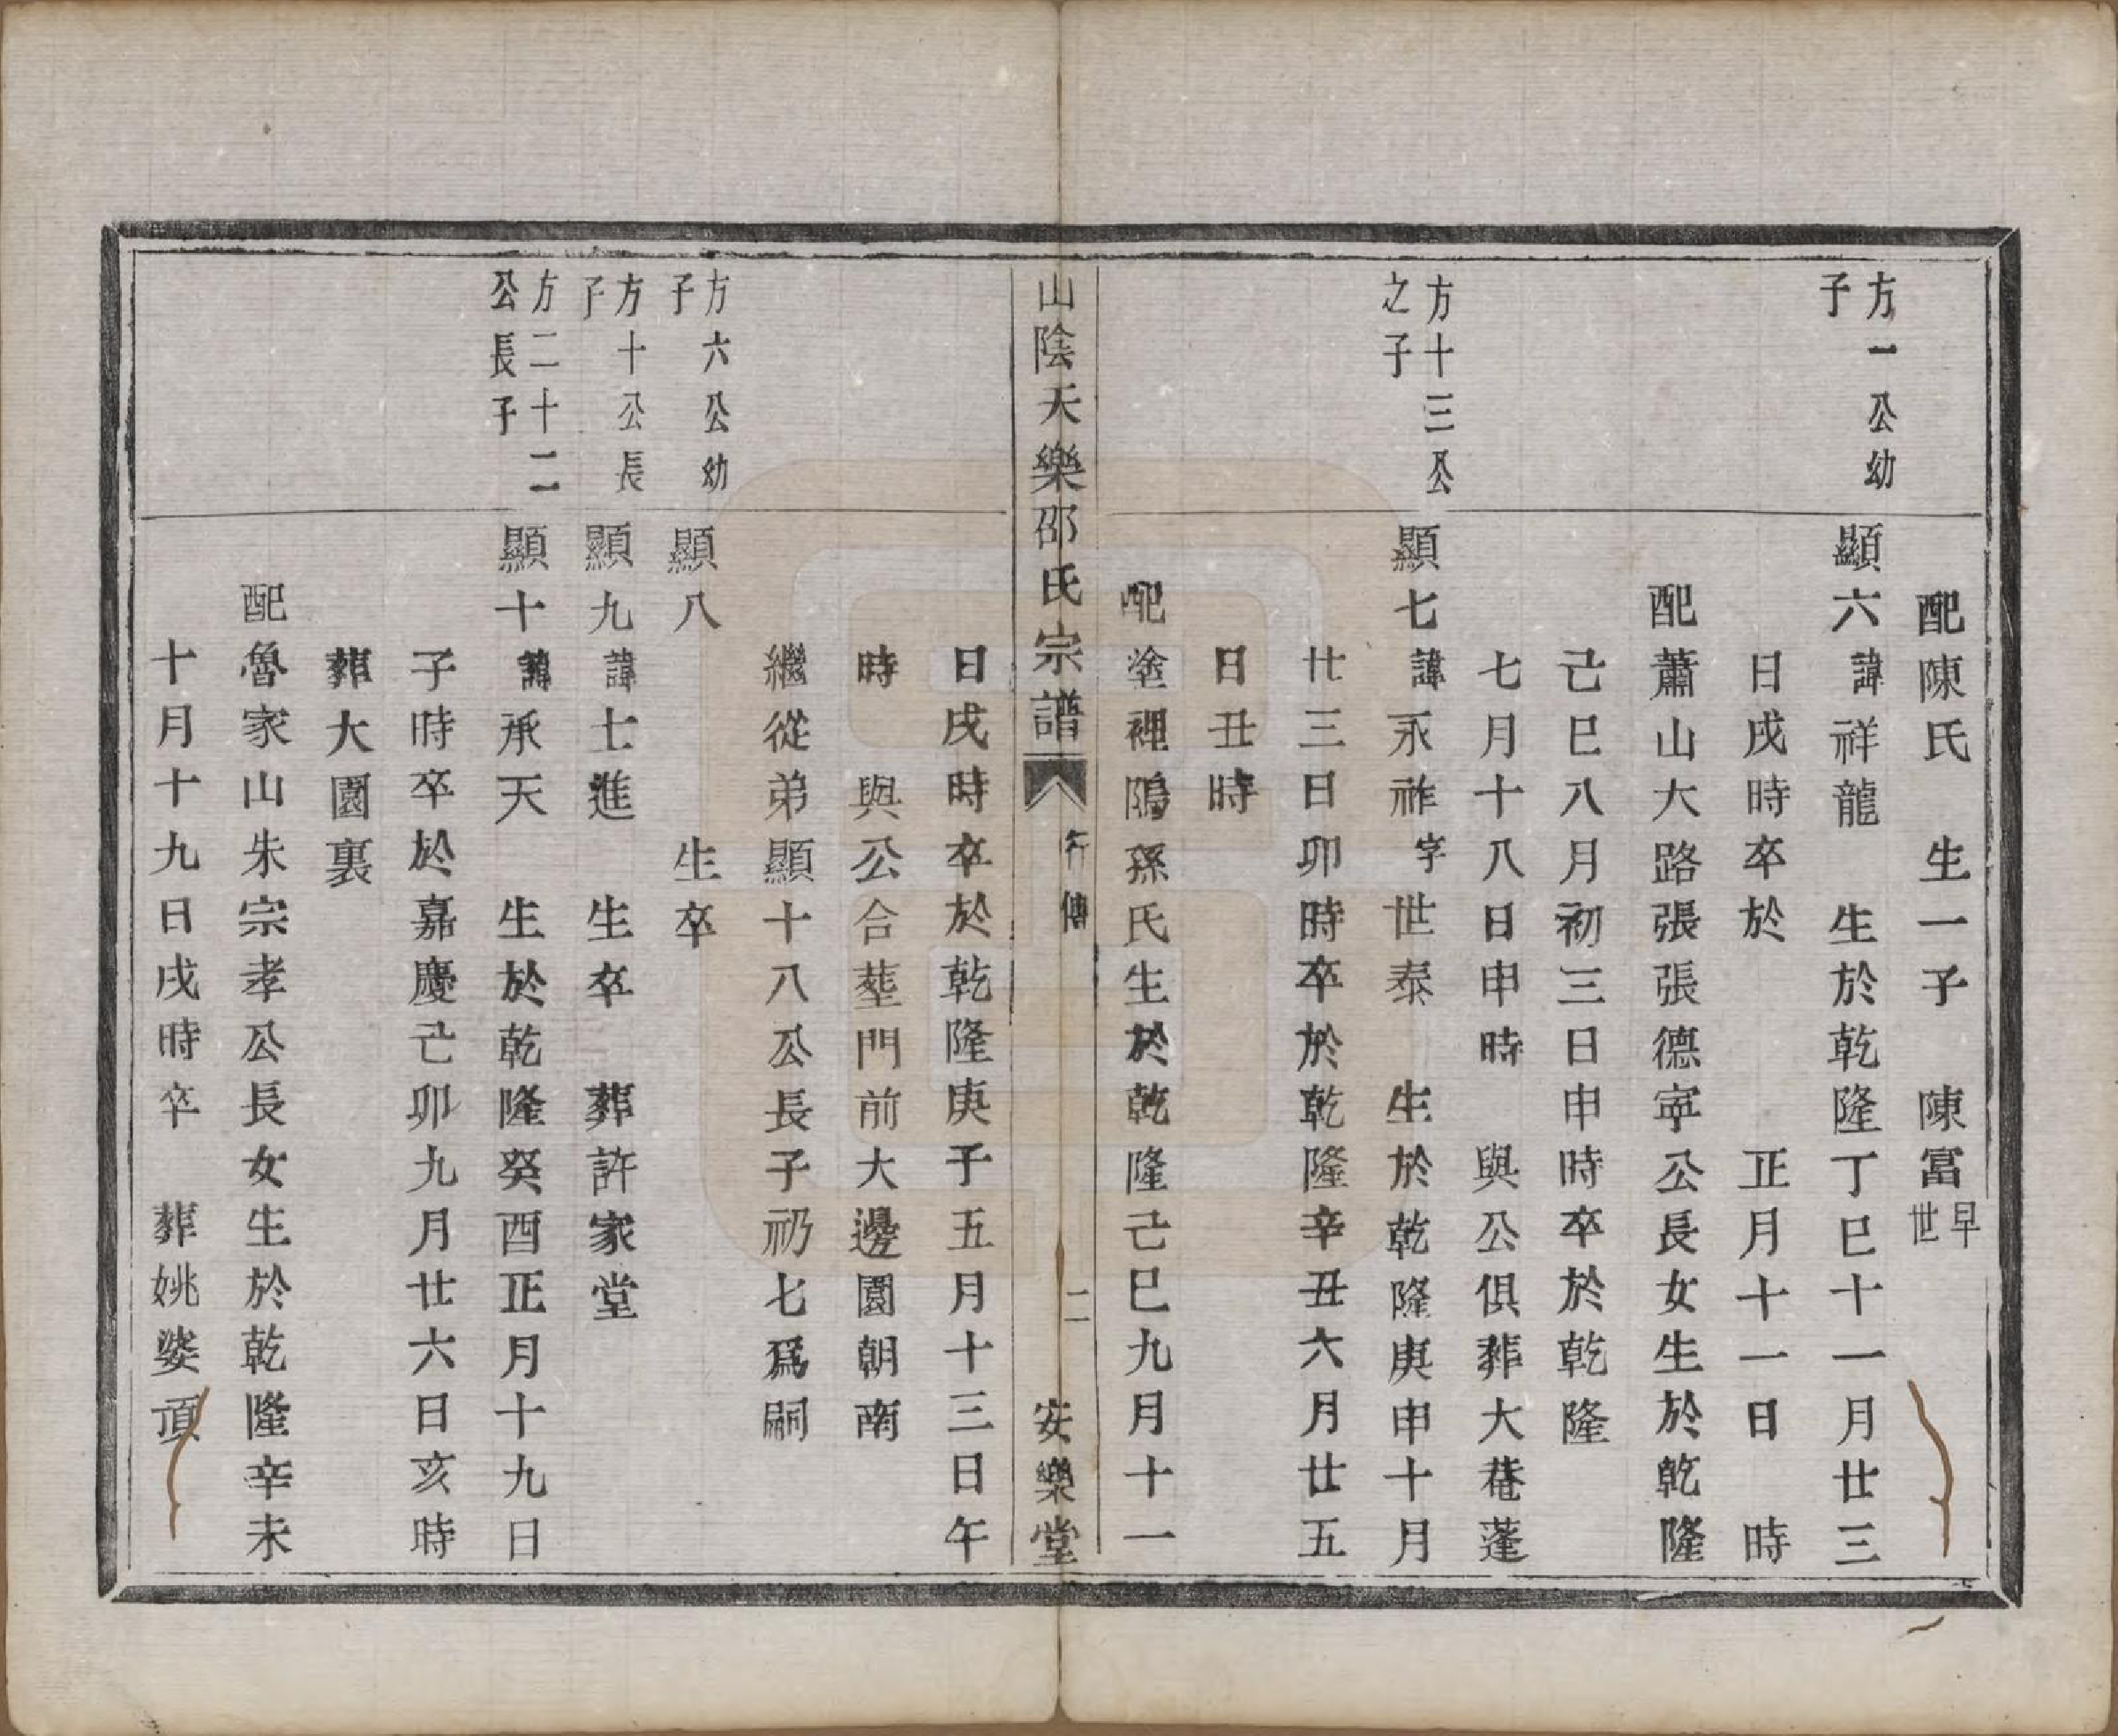 配陳氏　生一子　陳冨早世
方一公幼子
顯六諱祥龍　生於乾隆丁巳十一月廿三
日戌時卒於　正月十一日　時
配蕭山大路張張德寧公長女生於乾隆
己巳八月初三日申時卒於乾隆
七月十八日申時　與公俱葬大菴蓬
方十三公之子
顯七諱永祚字世泰　生於乾隆庚申十月
廿三日卯時卒於乾隆辛丑六月廿五
日丑時
配塗裡隖孫氏生於乾隆己巳九月十一
山陰天樂邵氏宗譜　行傳　二　安樂堂
日戌時卒於乾隆庚子五月十三日午
時　與公合塟門前大邊園朝南
繼從弟顯十八公長子礽七爲嗣
方六公幼子
顯八　生卒
方十公長子
顯九諱士進　生卒　葬許家堂
方二十二公長子
顯十諱承天　生於乾隆癸酉正月十九日
子時卒於嘉慶己卯九月廿六日亥時
葬大園裏
配魯家山朱宗孝公長女生於乾隆辛未
十月十九日戌時卒　葬姚婆頂